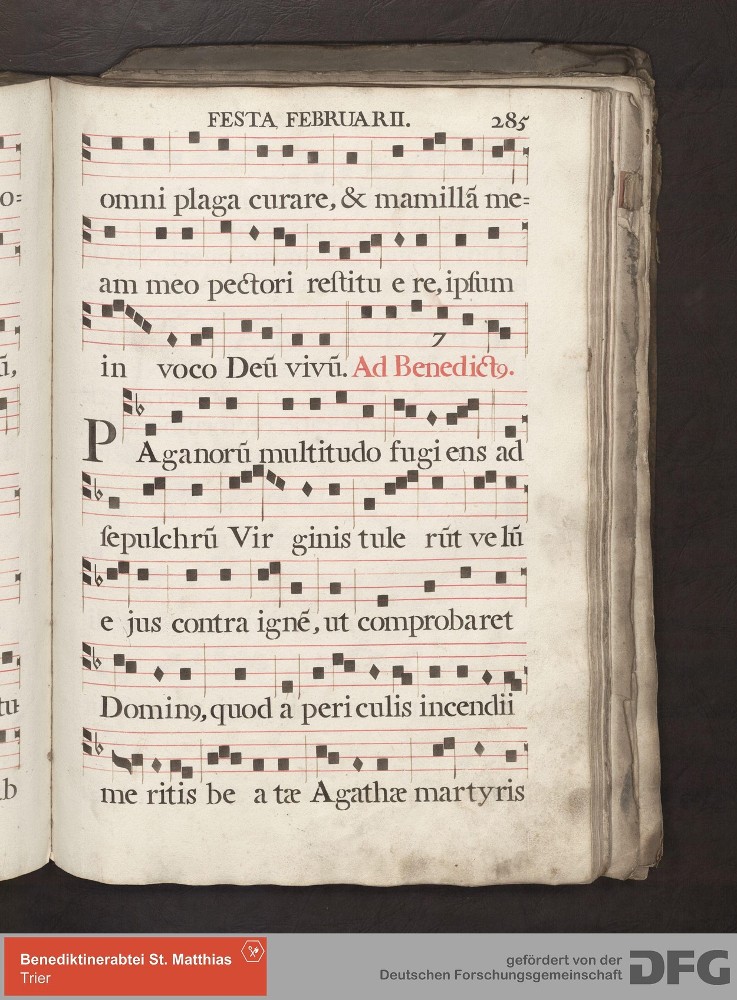 FESTA FEBRUARII. 285
omni plaga curare, & mamillã me=
am meo pectori reſtitu e re, ipſum
7
in voco Deũ vivũ. Ad Benedictꝯ.
PAganorũ multitudo fugiens ad
ſepulchrũ Vir ginis tule rũt velũ
e jus contra ignẽ, ut comprobaret
Dominꝯ, quod a periculis incendii
me ritis be a tæ Agathæ martyris
o=
ũ,
tu=
ab
Benediktinerabtei St. Matthias
Trier
gefördert von der
Deutschen Forschungsgemeinschaft
DFG